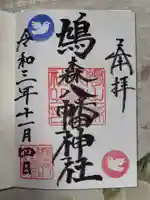 奉拝
鳩森八幡神社
令和三年十一月四日